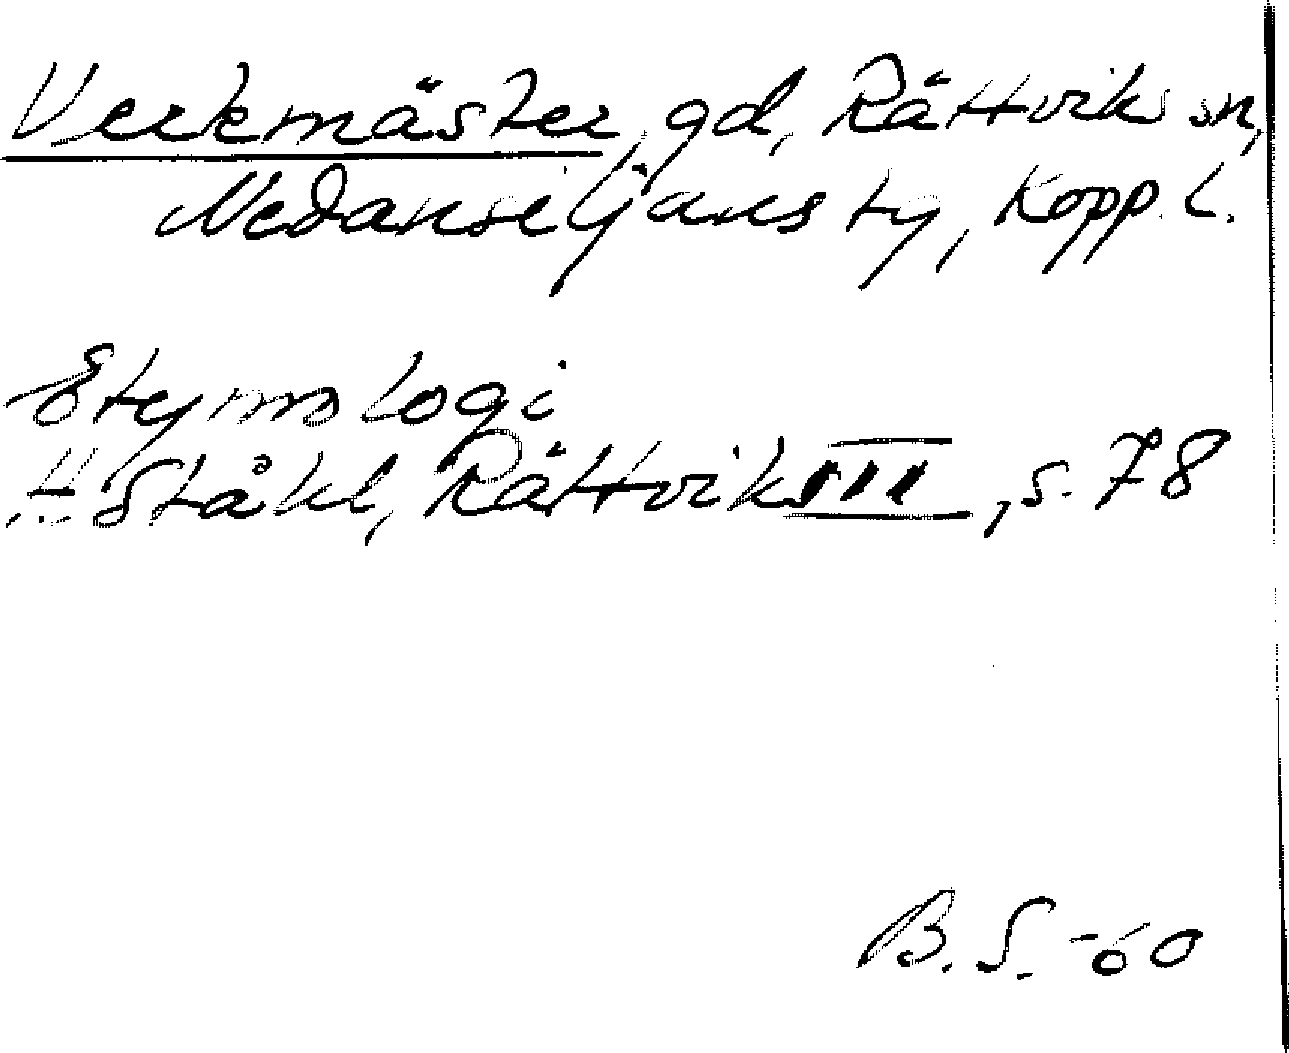 Verkmäster, gd, Rättviks sn,
Nedansiljans tg, Kopp. l.
Etymologi
H. Ståhl, Rättvik III, s. 78
B. S. -60